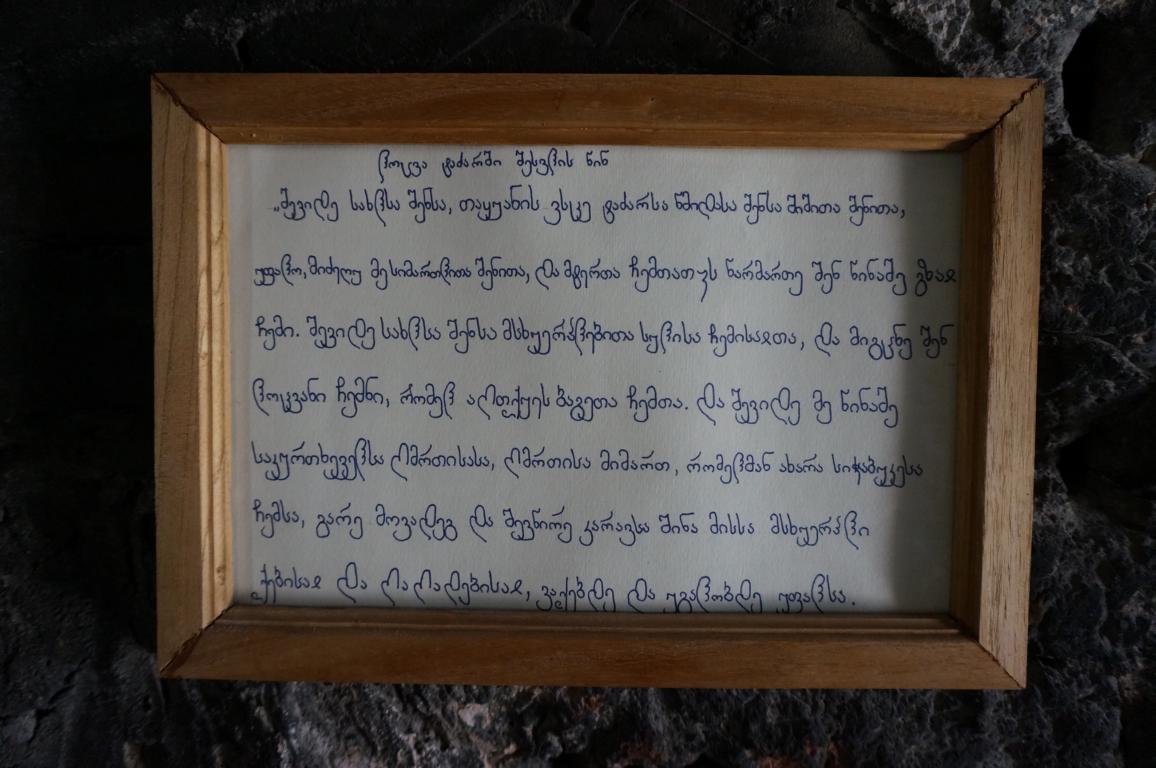 ლოცვა ტაძარში შესვლის წინ
„შევიდე სახლსა შენსა, თაყუანის ვსცე ტაძარსა წმიდასა შენსა შიშითა შენითა,
უფალო, მიძეღუ მე სიმართლითა შენითა, და მტერთა ჩემთათჳს წარმართე შენ წინაშე გზაჲ
ჩემი. შევიდე სახლსა შენსა მსხუერპლებითა სულისა ჩემისაჲთა, და მიგცნე შენ
ლოცვანი ჩემნი, რომელ აღთქუეს ბაგეთა ჩემთა. და შევიდე მე წინაშე
საკურთხეველსა ღმრთისასა, ღმრთისა მიმართ, რომელმან ახარა სიჭაბუკესა
ჩემსა, გარე მოვადეგ და შევწირე კარავსა შინა მისსა მსხუერპლი
ქებისაჲ და ღაღადებისაჲ, ვაქებდე და უგალობდე უფალსა.